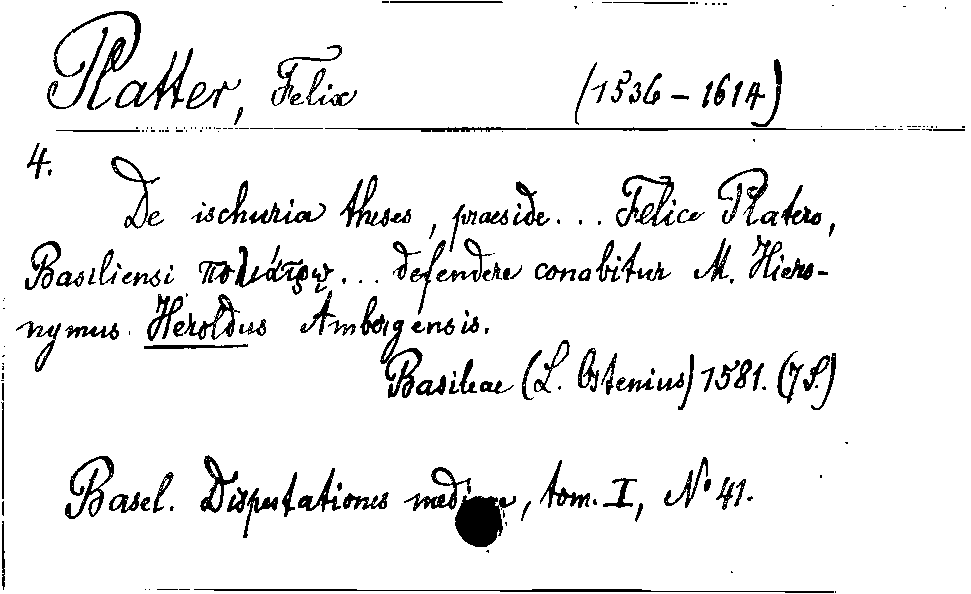 Platter, Felix (1536 - 1614)
4.
De ischuria theses, praeside... Felice Platero,
Basiliensi πολιάτρῳ... defendere conabitur M. Hiero-
nymus Heroldus Ambergensis.
Basileae (L. Ostenius) 1581. (7 S.)
Basel. Disputationes medicae, tom. I, No 41.